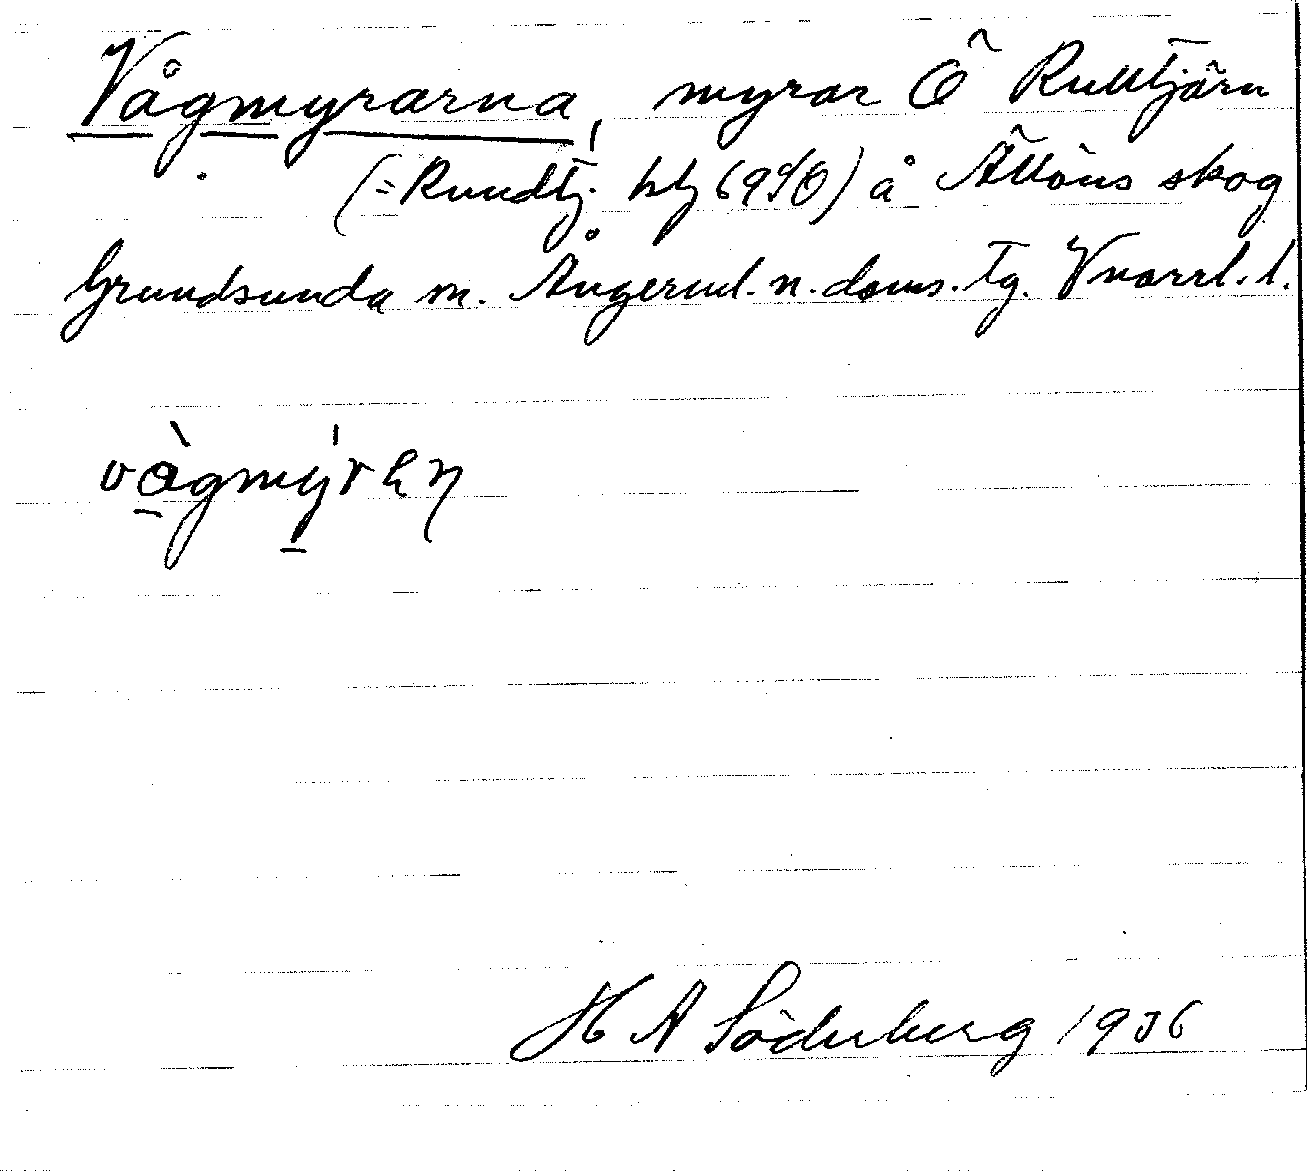 Vågmyrarna, myrar Ö Rulltjärn
(= Rundtj. blz 69SO) å Ällöns skog
Grundsunda sn. Ångerml. n. doms. tg. Vnorrl. l.
vågmýrhn
H A Söderberg 1936